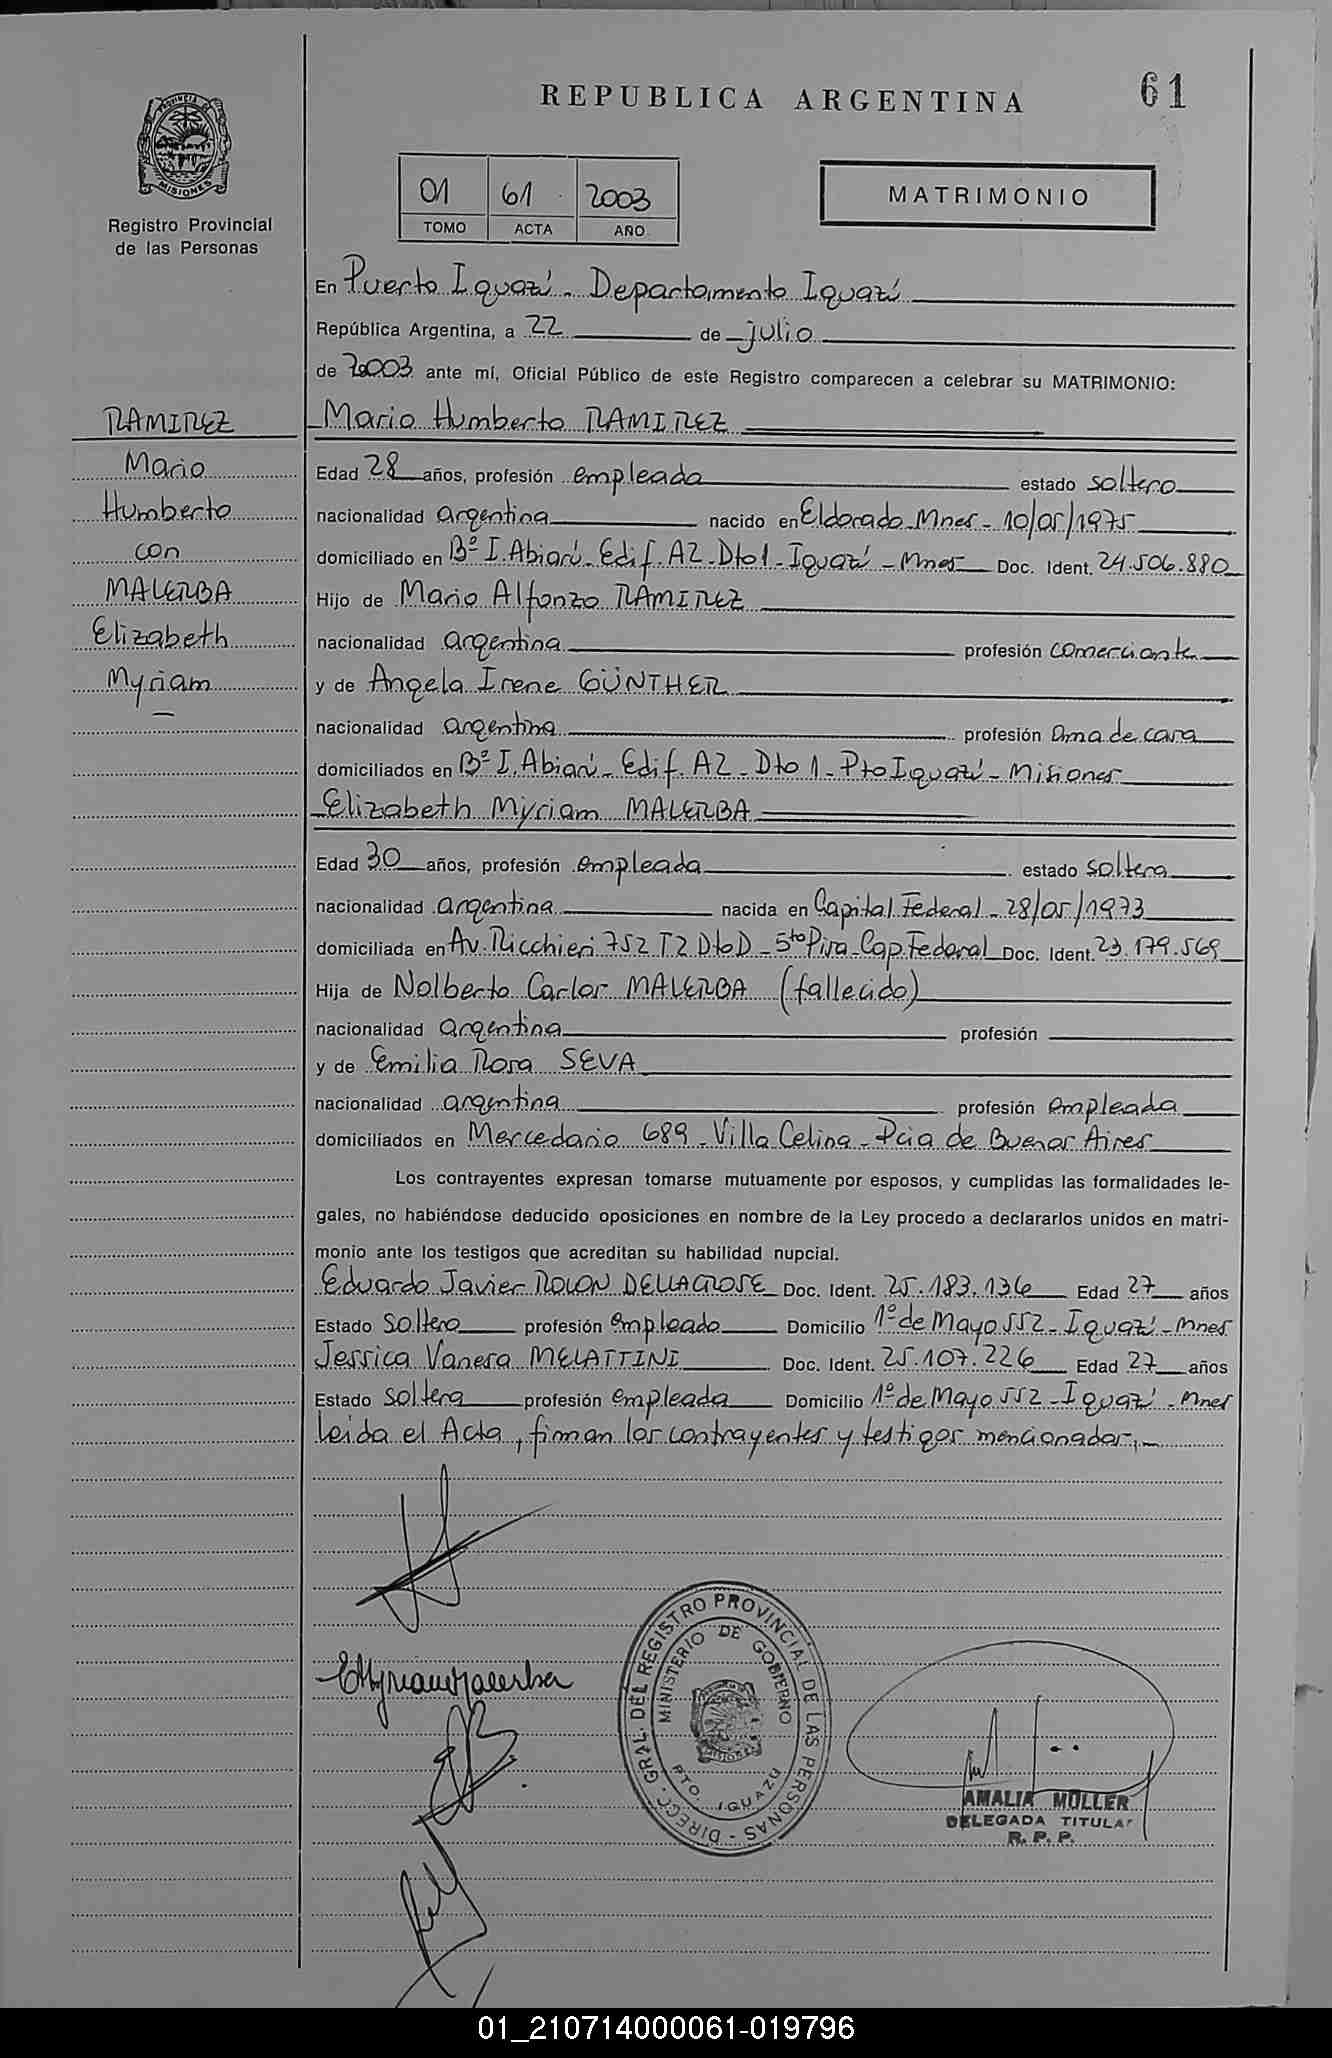 REPUBLICA ARGENTINA
61
PROVINCIA DE
MISIONES
Registro Provincial
de las Personas
01 61 2003
TOMO ACTA AÑO
MATRIMONIO
En Puerto Iguazú - Departamento Iguazú
República Argentina, a 22 de julio
de 2003 ante mí, Oficial Público de este Registro comparecen a celebrar su MATRIMONIO:
RAMIREZ
Mario
Humberto
con
MALERBA
Elizabeth
Myriam
Mario Humberto RAMIREZ
Edad 28 años, profesión empleado estado soltero
nacionalidad argentina nacido en Eldorado Mnes - 10/05/1975
domiciliado en Bº I. Abiarú - Edif. A2 - Dto 1 - Iguazú - Mnes Doc. Ident. 24.506.880
Hijo de Mario Alfonzo RAMIREZ
nacionalidad argentina profesión comerciante
y de Angela Irene GÜNTHER
nacionalidad argentina profesión ama de casa
domiciliados en Bº I. Abiarú - Edif. A2 - Dto 1 - Pto Iguazú - Misiones
Elizabeth Myriam MALERBA
Edad 30 años, profesión empleada estado soltera
nacionalidad argentina nacida en Capital Federal - 28/05/1973
domiciliada en Av. Ricchieri 752 T2 Dto D - 5to Piso - Cap. Federal Doc. Ident. 23.179.569
Hija de Nolberto Carlos MALERBA (fallecido)
nacionalidad argentina profesión
y de Emilia Rosa SEVA
nacionalidad argentina profesión empleada
domiciliados en Mercedario 689 - Villa Celina - Pcia de Buenos Aires
Los contrayentes expresan tomarse mutuamente por esposos, y cumplidas las formalidades le-
gales, no habiéndose deducido oposiciones en nombre de la Ley procedo a declararlos unidos en matri-
monio ante los testigos que acreditan su habilidad nupcial.
Eduardo Javier ROLON DELLAGROSE Doc. Ident. 25.183.136 Edad 27 años
Estado soltero profesión empleado Domicilio 1º de Mayo 552 - Iguazú - Mnes
Jessica Vanesa MELATTINI Doc. Ident. 25.107.226 Edad 27 años
Estado soltera profesión empleada Domicilio 1º de Mayo 552 - Iguazú - Mnes
leída el Acta, firman los contrayentes y testigos mencionados.-
DIRECC. GRAL. DEL REGISTRO PROVINCIAL DE LAS PERSONAS -
MINISTERIO DE GOBIERNO
PTO. IGUAZU
AMALIA MULLER
DELEGADA TITULAR
R. P. P.
01_210714000061-019796